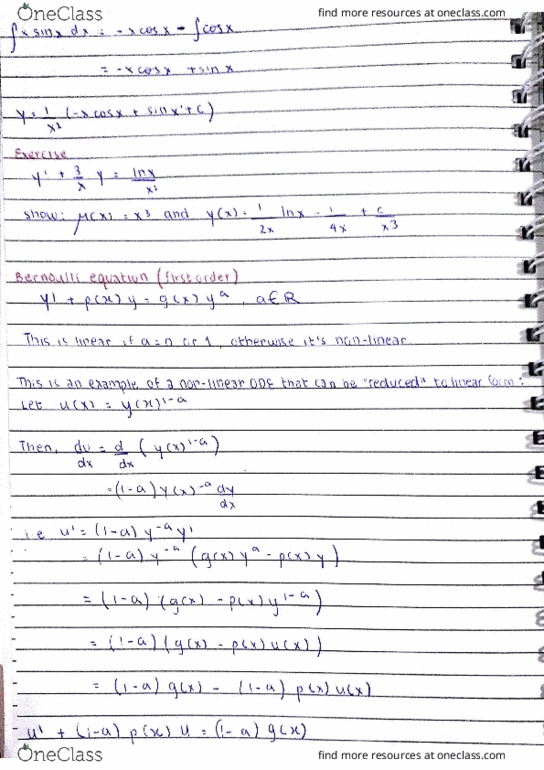 OneClass find more resources at oneclass.com
∫x sinx dx = -xcosx - ∫cosx
= -xcosx + sinx
y = 1/x³ (-xcosx + sinx + c)
Exercise
y' + 3/x y = lnx/x²
show: μ(x) = x³ and y(x) = 1/2x lnx - 1/4x + c/x³
Bernoulli equation (first order)
y' + p(x) y = g(x) yᵃ, a∈R
This is linear if a=0 or 1, otherwise it's non-linear
This is an example of a non-linear ODE that can be "reduced" to linear form:
Let u(x) = y(x)¹⁻ᵃ
Then, du/dx = d/dx (y(x)¹⁻ᵃ)
= (1-a) y(x)⁻ᵃ dy/dx
i.e u' = (1-a) y⁻ᵃ y'
= (1-a) y⁻ᵃ (g(x) yᵃ - p(x) y)
= (1-a) (g(x) - p(x) y¹⁻ᵃ)
= (1-a) (g(x) - p(x) u(x))
= (1-a) g(x) - (1-a) p(x) u(x)
u' + (1-a) p(x) u = (1-a) g(x)
OneClass find more resources at oneclass.com